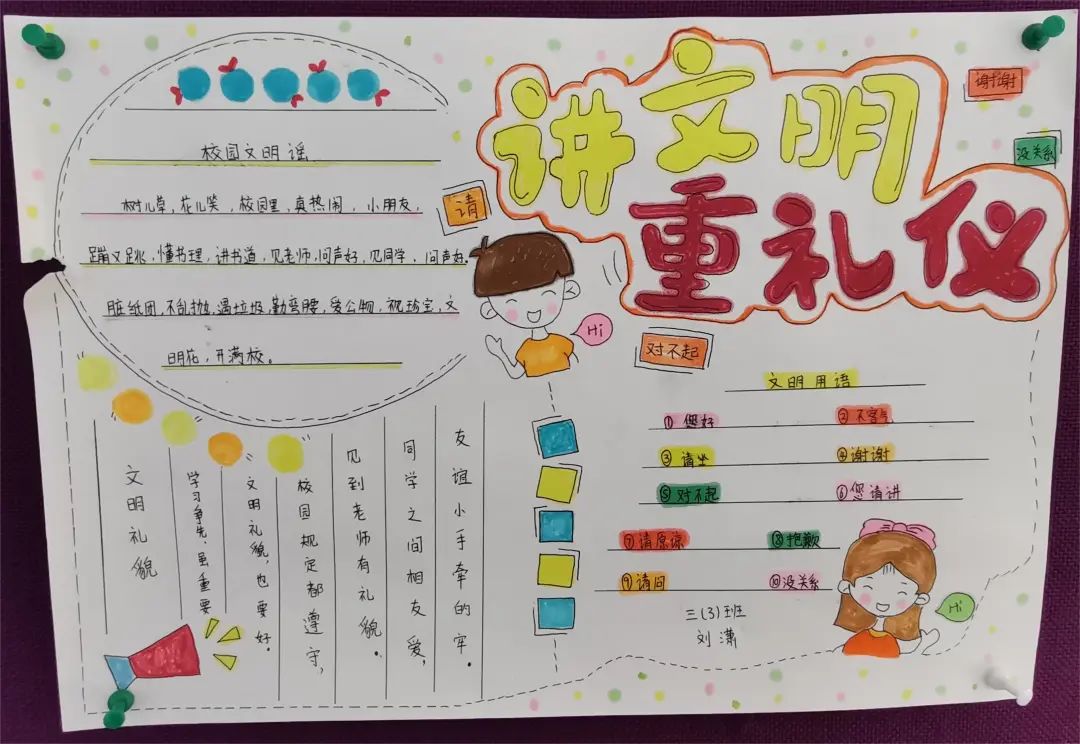 讲文明
重礼仪
谢谢
没关系
请
对不起
Hi
校园文明谣
树儿草,花儿笑,校园里,真热闹,小朋友,
蹦又跳,懂书理,讲书道,见老师,问声好,见同学,问声好,
脏纸团,不乱抛,遇垃圾,勤弯腰,爱公物,视珍宝,文
明花,开满校。
文明礼貌
学习争先,虽重要
文明礼貌,也要好。
校园规定都遵守,
见到老师有礼貌。
同学之间相友爱,
友谊小手牵的牢。
文明用语
①您好 ②不客气
③请坐 ④谢谢
⑤对不起 ⑥您请讲
⑦请原谅 ⑧抱歉
⑨请问 ⑩没关系
三(3)班
刘潇
Hi